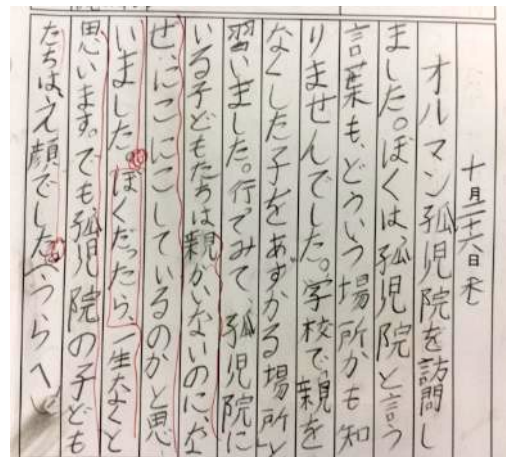 十月二十六日水
オルマン孤児院を訪問し
ました。ぼくは孤児院と言う
言葉も、どういう場所かも知
りませんでした。学校で親を
なくした子をあずかる場所と
習いました。行ってみて、孤児院に
いる子どもたちは親がいないのに、な
ぜ、にこにこしているのかと思
いました。ぼくだったら、一生なくと
思います。でも孤児院の子ども
たちは、え顔でした。(うらへ)